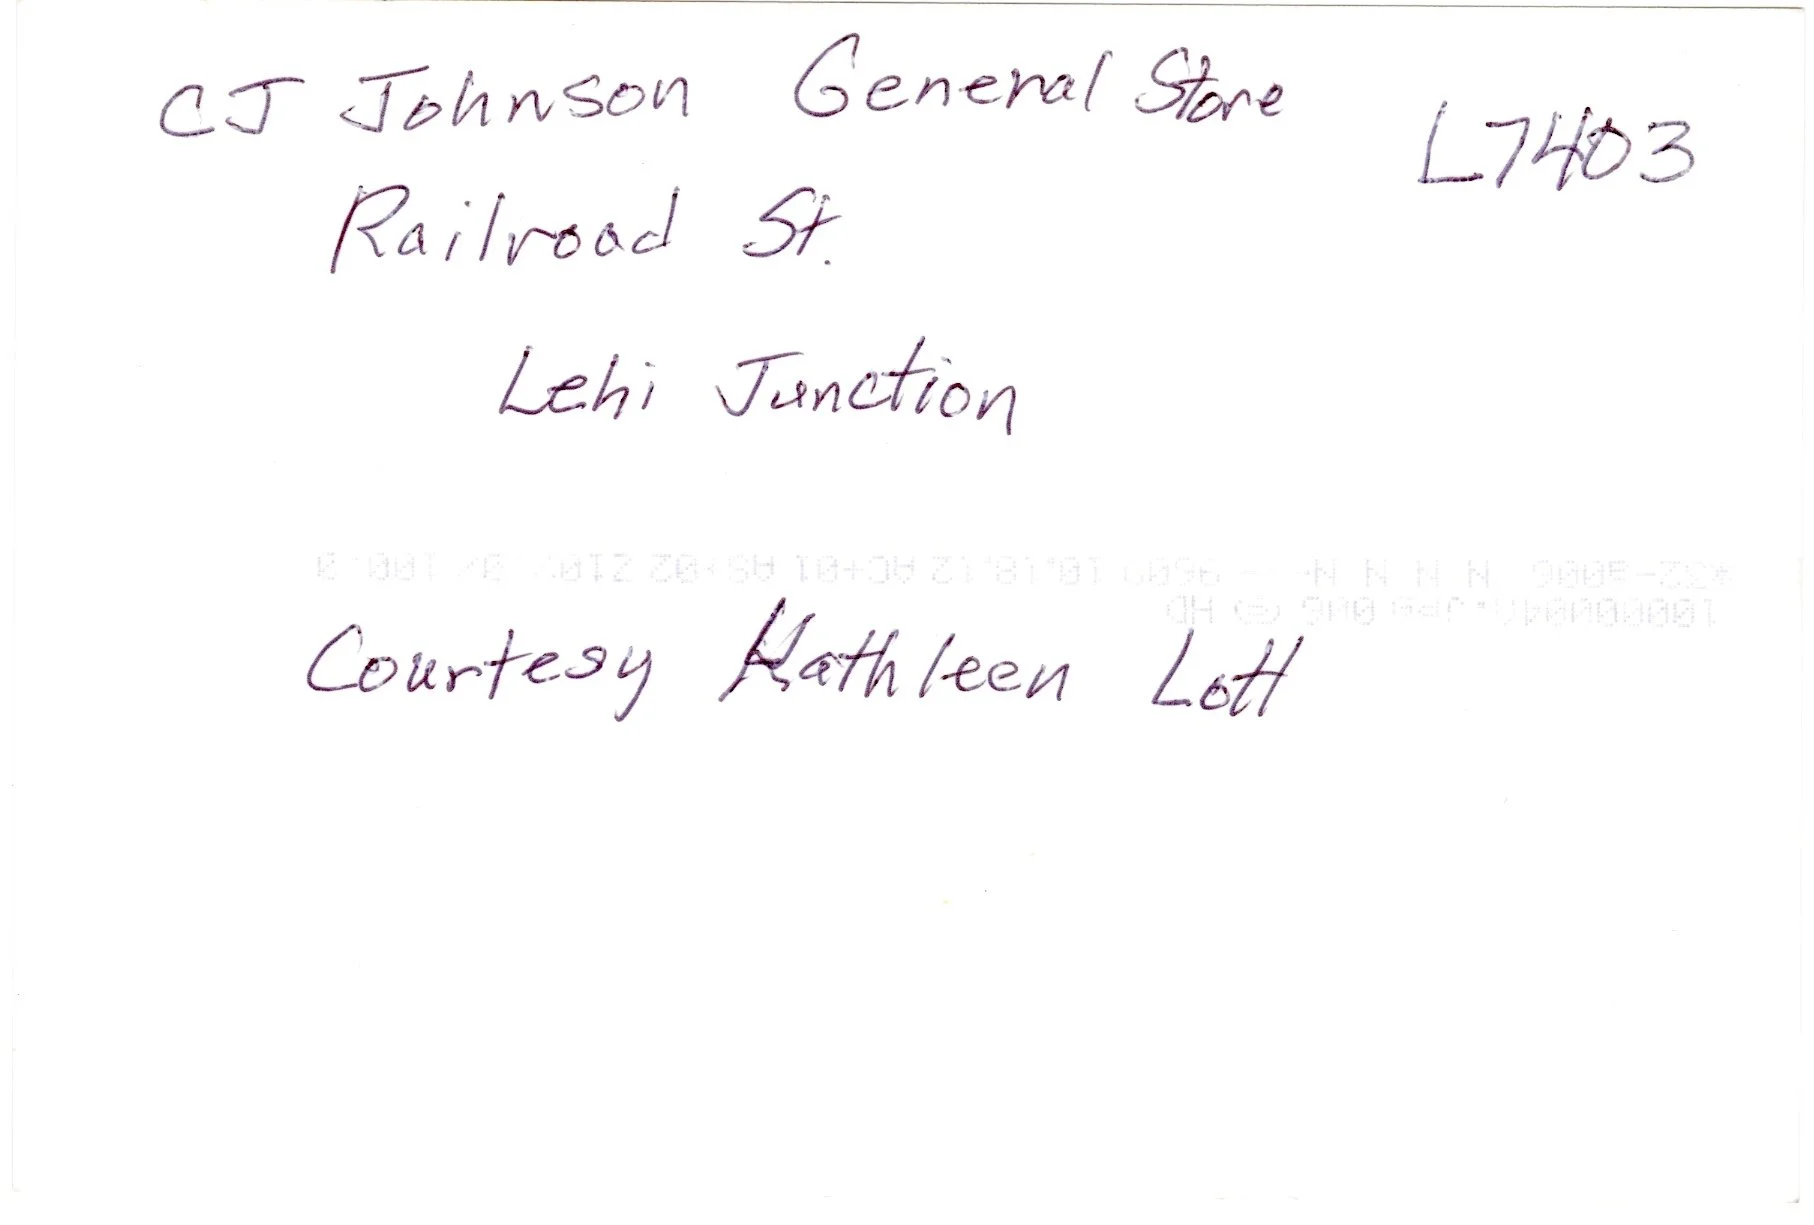 CJ Johnson General Store
L7403
Railroad St.
Lehi Junction
Courtesy Kathleen Lott